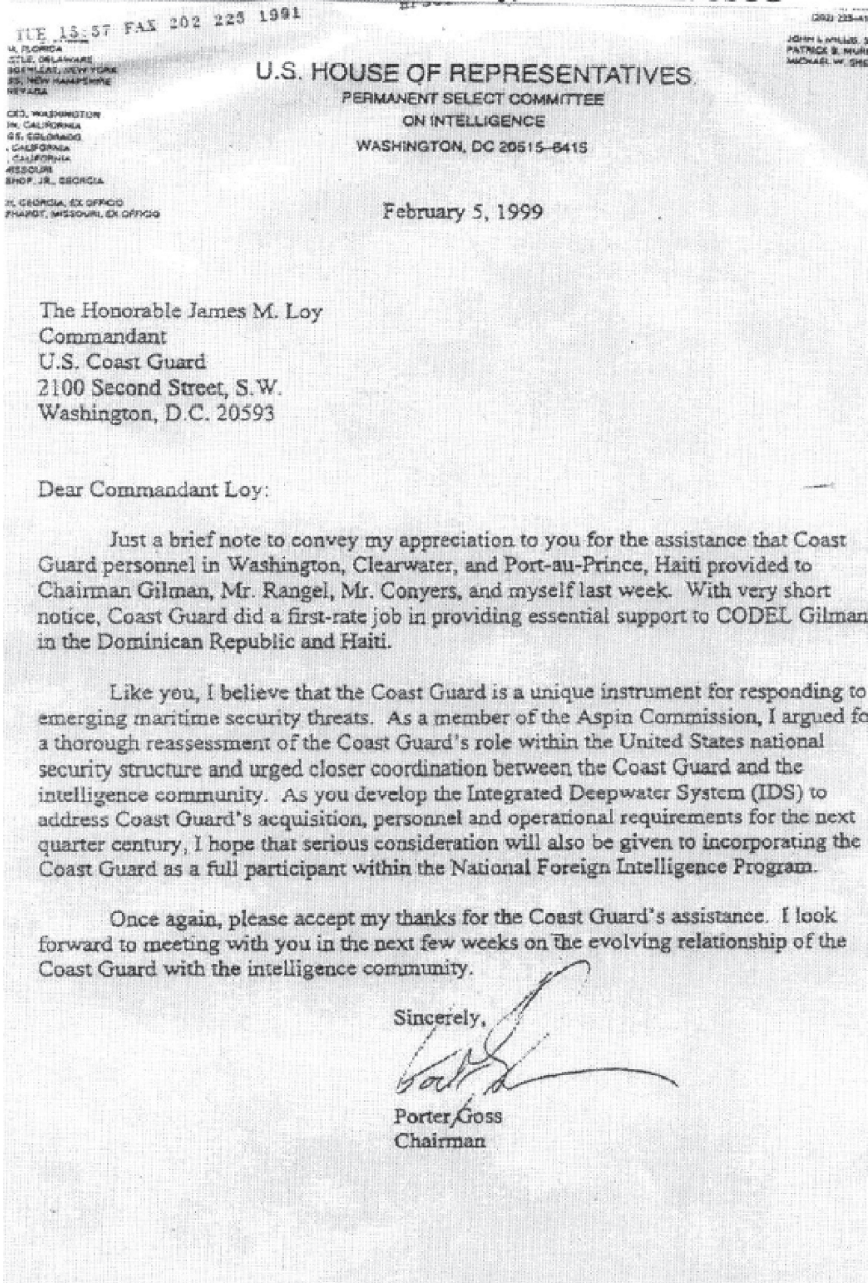 TUE 15:57 FAX 202 225 1991
FLORIDA
DELAWARE
NEW YORK
NEW HAMPSHIRE
NEVADA
WASHINGTON
CALIFORNIA
COLORADO
CALIFORNIA
CALIFORNIA
MISSOURI
JR., GEORGIA
GEORGIA, EX OFFICIO
MISSOURI, EX OFFICIO
(202) 225-
JOHN
PATRICK B.
MICHAEL W.
U.S. HOUSE OF REPRESENTATIVES
PERMANENT SELECT COMMITTEE
ON INTELLIGENCE
WASHINGTON, DC 20515-6415
February 5, 1999
The Honorable James M. Loy
Commandant
U.S. Coast Guard
2100 Second Street, S.W.
Washington, D.C. 20593
Dear Commandant Loy:
Just a brief note to convey my appreciation to you for the assistance that Coast
Guard personnel in Washington, Clearwater, and Port-au-Prince, Haiti provided to
Chairman Gilman, Mr. Rangel, Mr. Conyers, and myself last week. With very short
notice, Coast Guard did a first-rate job in providing essential support to CODEL Gilman
in the Dominican Republic and Haiti.
Like you, I believe that the Coast Guard is a unique instrument for responding to
emerging maritime security threats. As a member of the Aspin Commission, I argued fo
a thorough reassessment of the Coast Guard's role within the United States national
security structure and urged closer coordination between the Coast Guard and the
intelligence community. As you develop the Integrated Deepwater System (IDS) to
address Coast Guard's acquisition, personnel and operational requirements for the next
quarter century, I hope that serious consideration will also be given to incorporating the
Coast Guard as a full participant within the National Foreign Intelligence Program.
Once again, please accept my thanks for the Coast Guard's assistance. I look
forward to meeting with you in the next few weeks on the evolving relationship of the
Coast Guard with the intelligence community.
Sincerely,
Porter Goss
Chairman